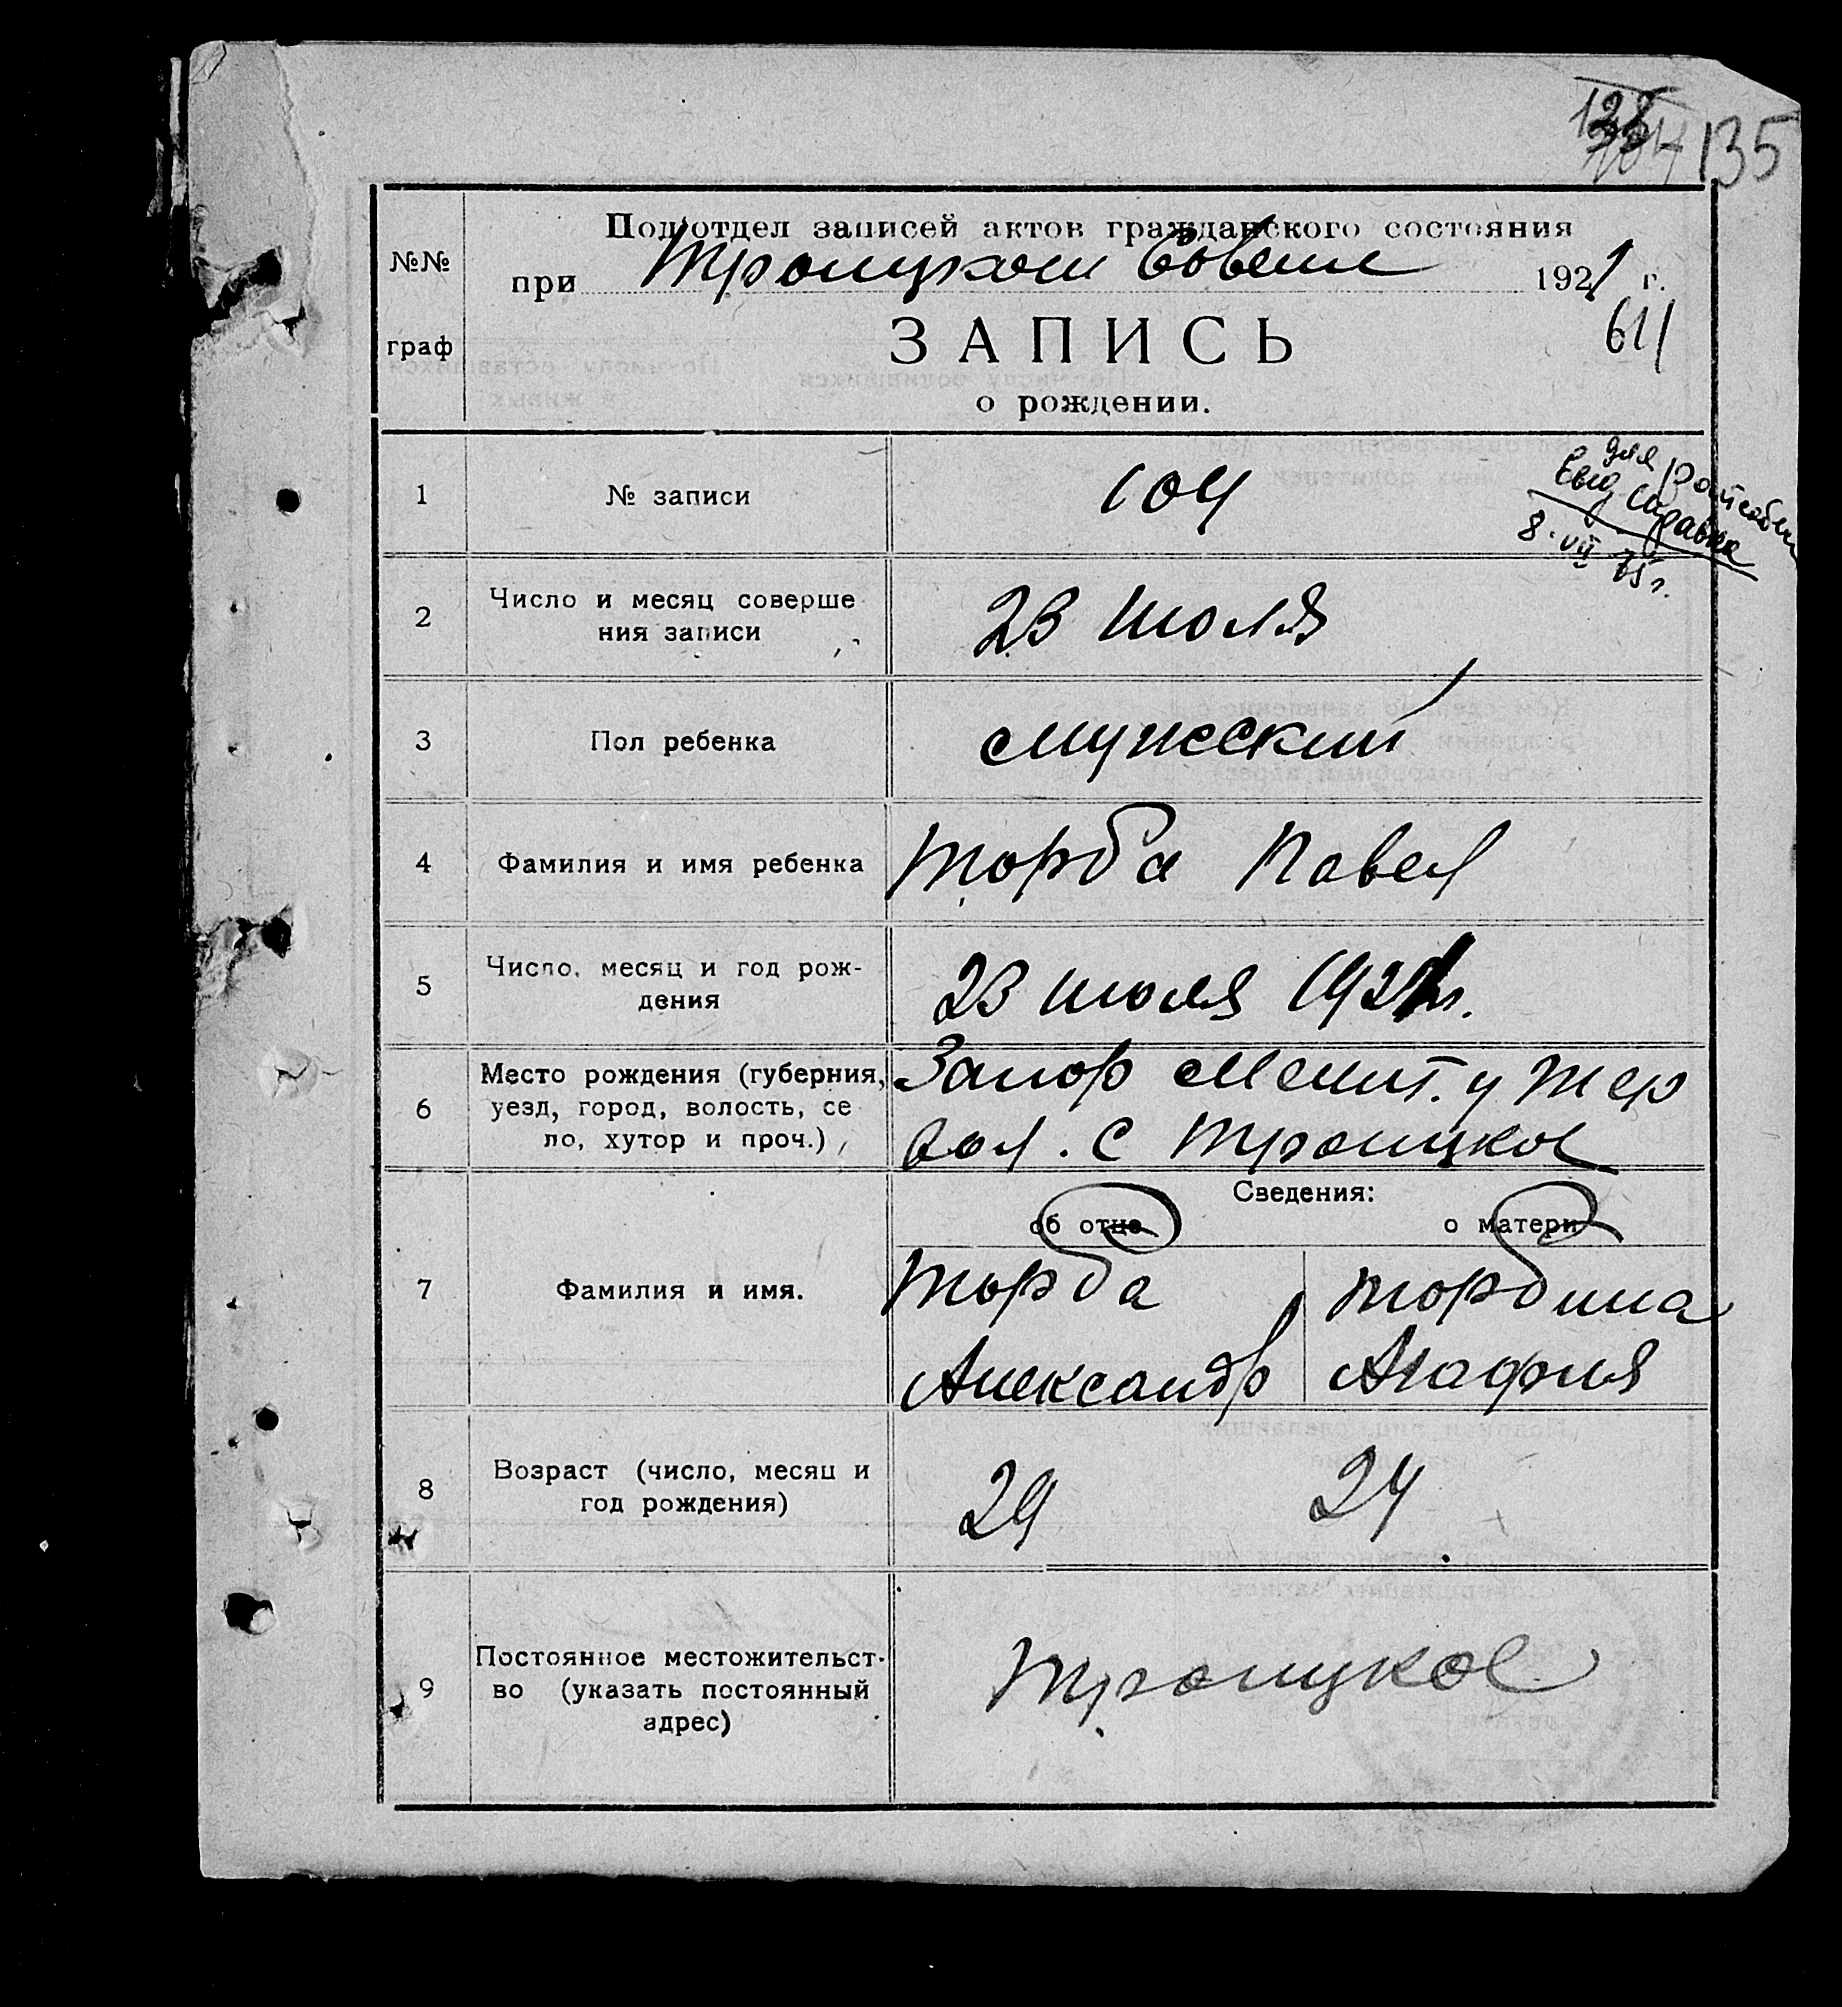 135
Подотдел записей актов гражданского состояния
№№ граф
при Троицком Совете 1921 г.
ЗАПИСЬ
611
о рождении.
1 № записи 104
для
Выд справка
8.VII
2 Число и месяц соверше
ния записи
23 июля
3 Пол ребенка мужеский
4 Фамилия и имя ребенка Торба Павел
5 Число, месяц и год рож-
дения
23 июля 1921 г.
6 Место рождения (губерния,
уезд, город, волость, се
ло, хутор и проч.)
Запор Мелит. у Тер
вол. с Троицкое
Сведения:
об отце о матери
7 Фамилия и имя.
Торба Торбина
Александр Агафия
8 Возраст (число, месяц и
год рождения)
29 24
9 Постоянное местожительст-
во (указать постоянный
адрес)
Троицкое